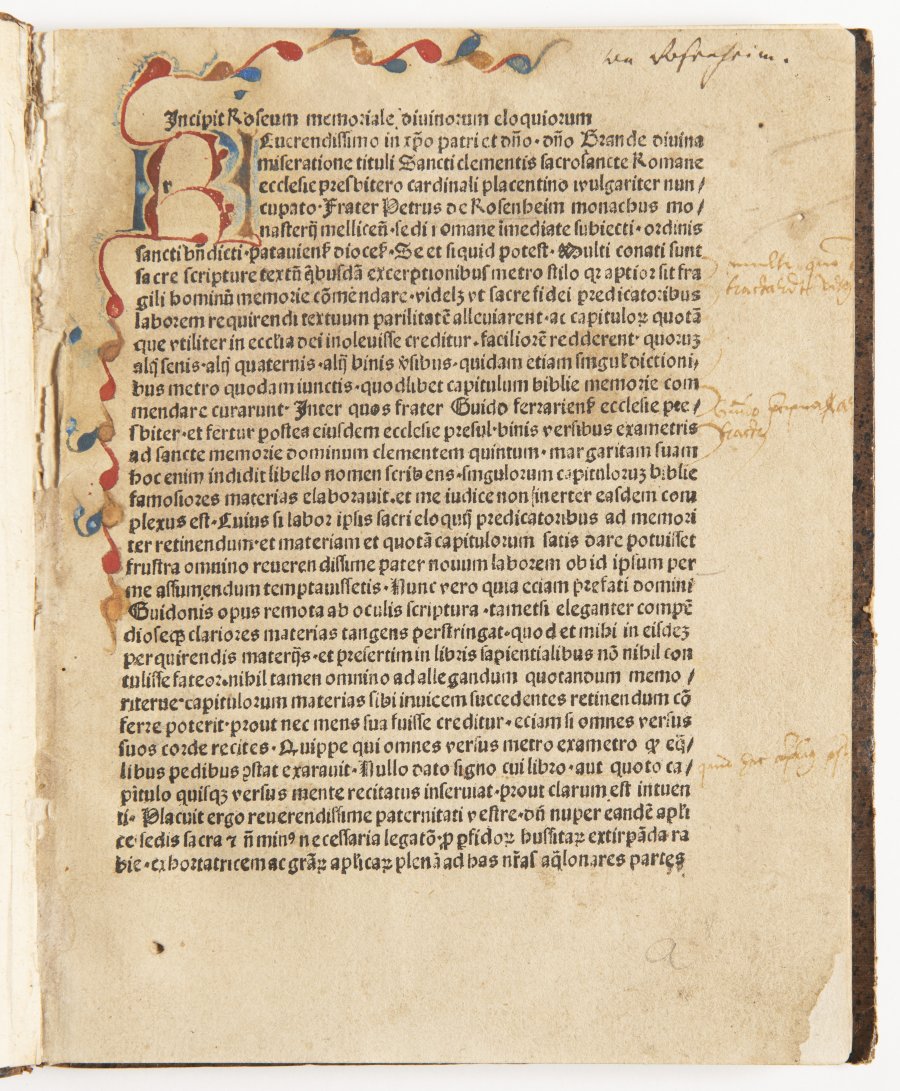 von Rosenheim.
Incipit Roseum memoriale diuinorum eloquiorum
REuerendissimo in xp̄o patri et dn̄o · dn̄o Brande diuina
miseratione tituli Sancti clementis sacrosancte Romane
ecclesie presbitero cardinali placentino wulgariter nun /
cupato · Frater Petrus de Rosenheim monachus mo /
nasterij mellicen̄ · sedi romane īmediate subiecti · ordinis
sancti bn̄dicti · patauienꝭ diocesꝭ · Se et siquid potest · Multi conati sunt
sacre scripture textū q̄busdā exceptionibus metro stilo qꝛ aptior sit fra
gili hominū memorie cōmendare · videlꝫ vt sacre fidei predicatoribus
laborem requirendi textuum parilitatē alleuiarent · ac capituloꝝ quotā
que vtiliter in ecclīa dei inoleuisse creditur · faciliorē redderent · quoruꝫ
alij senis · alij quaternis · alij binis v̄sibus · quidam etiam singulꝭ dictioni /
bus metro quodam iunctis · quodlibet capitulum biblie memorie com
mendare curarunt · Inter quos frater Guido ferrarienꝭ ecclesie pre /
sbiter · et fertur postea eiusdem ecclesie presul · binis versibus exametris
ad sancte memorie dominum clementem quintum · margaritam suam
hoc enim indidit libello nomen scribens · singulorum capituloruꝫ biblie
famosiores materias elaborauit · et me iudice non inerter easdem com
plexus est · Cuius si labor ipsis sacri eloquij predicatoribus ad memori
ter retinendum · et materiam et quotā capitulorum satis dare potuisset
frustra omnino reuerendissime pater nouum laborem ob id ipsum per
me assumendum temptauissetis · Nunc vero quia eciam prefati domini
Guidonis opus remota ab oculis scriptura · tametsi eleganter compē
dioseqꝫ clariores materias tangens perstringat · quod et mihi in eisdeꝫ
perquirendis materijs · et presertim in libris sapientialibus nō nihil con
tulisse fateor · nihil tamen omnino ad allegandum quotandum memo /
riterue capitulorum materias sibi inuicem succedentes retinendum cō
ferre poterit · prout nec mens sua fuisse creditur · eciam si omnes versus
suos corde recites · Quippe qui omnes versus metro exametro qꝫ eq̄ /
libus pedibus ꝯstat exarauit · Nullo dato signo cui libro · aut quoto ca /
pitulo quisqꝫ versus mente recitatus inseruiat · prout clarum est intuen
ti · Placuit ergo reuerendissime paternitati vestre · dn̄ nuper eandē apl̄i
ce sedis sacra ⁊ n̄ minꝰ necessaria legatō · ꝓ ꝑfidoꝝ hussitaꝝ extirpāda ra
bie · exhortatricem ac gr̄aꝝ aplicaꝝ plenā ad has nr̄as aq̄lonares partes
a